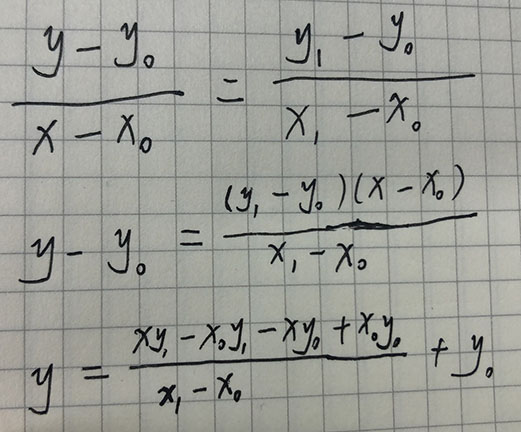 (y - y₀)/(x - x₀) = (y₁ - y₀)/(x₁ - x₀)
y - y₀ = (y₁ - y₀)(x - x₀)/(x₁ - x₀)
y = (xy₁ - x₀y₁ - xy₀ + x₀y₀)/(x₁ - x₀) + y₀